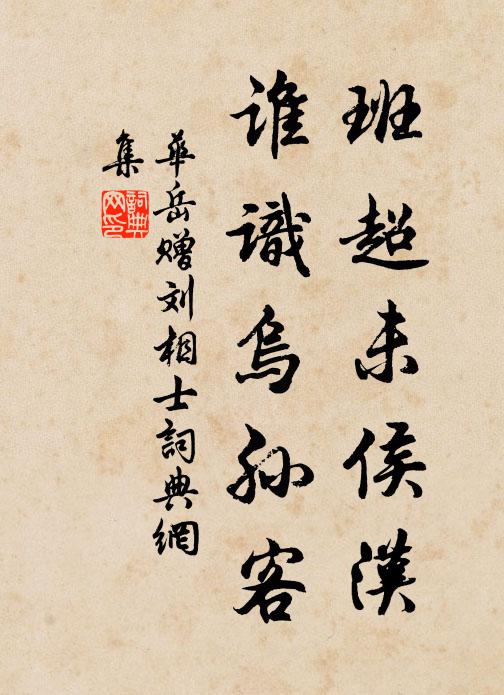 班超未侯漢
誰識烏孫客
華岳贈刘相士詞典網
集
詞典
网印